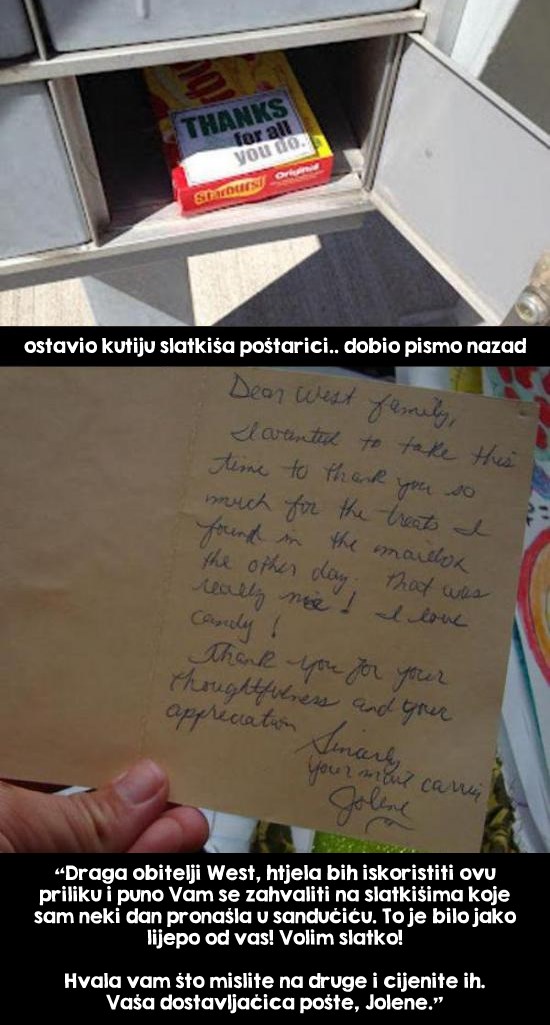 THANKS
for all
you do.
Starburst
Original
ostavio kutiju slatkiša poštarici.. dobio pismo nazad
Dear West family,
I wanted to take this
time to thank you so
much for the treats I
found in the mailbox
the other day. That was
really nice! I love
candy!
Thank you for your
thoughtfulness and your
appreciation
Sincerly
your mail carrier
Jolene
“Draga obitelji West, htjela bih iskoristiti ovu
priliku i puno Vam se zahvaliti na slatkišima koje
sam neki dan pronašla u sandučiću. To je bilo jako
lijepo od vas! Volim slatko!
Hvala vam što mislite na druge i cijenite ih.
Vaša dostavljačica pošte, Jolene.”